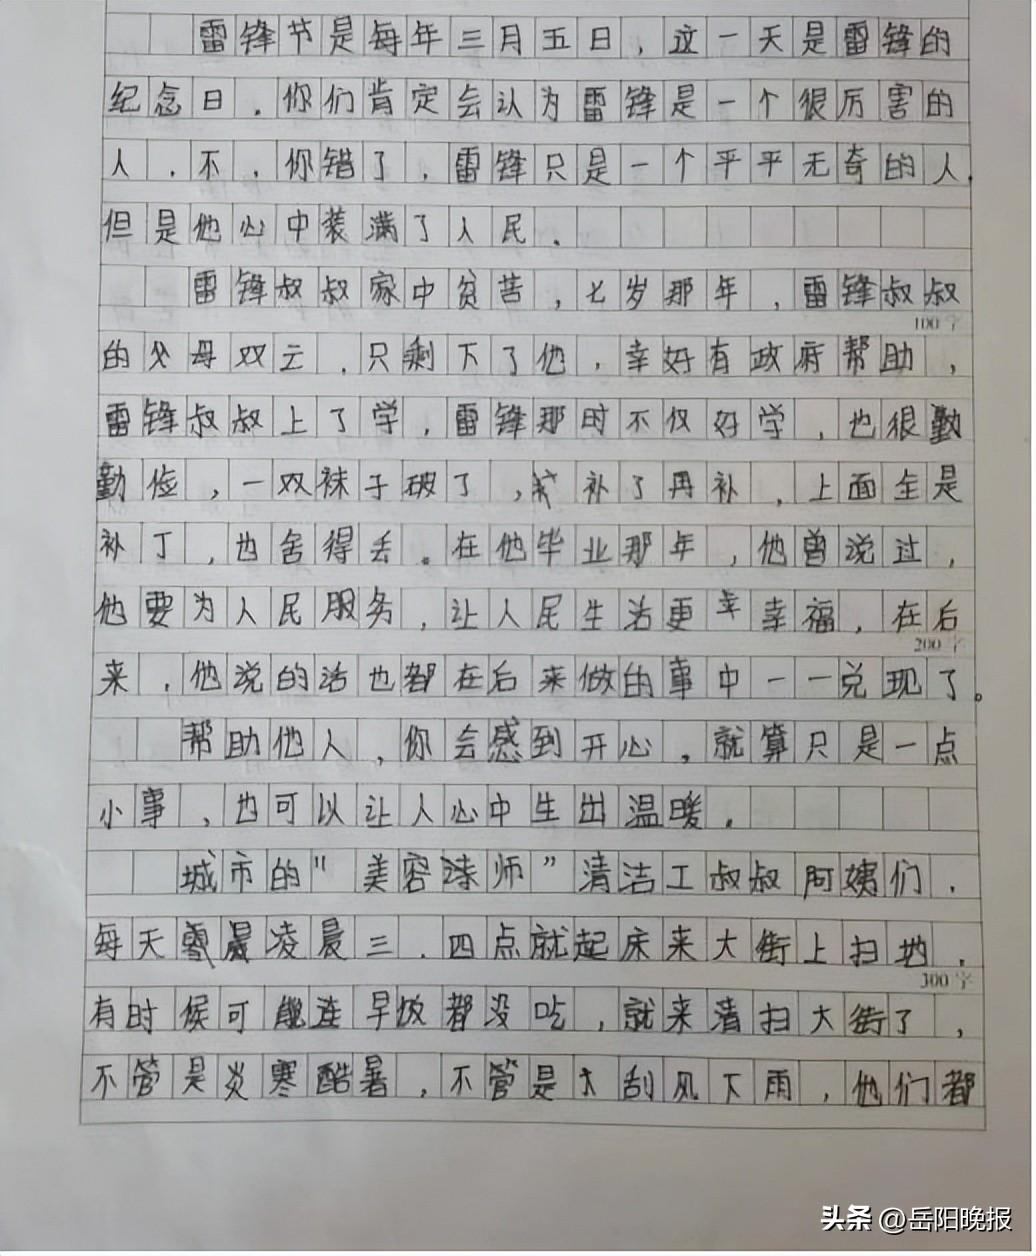 雷锋节是每年三月五日，这一天是雷锋的
纪念日．你们肯定会认为雷锋是一个很厉害的
人．不，你错了，雷锋只是一个平平无奇的人．
但是他心中装满了人民．
雷锋叔叔家中贫苦，七岁那年，雷锋叔叔
100字
的父母双亡．只剩下了他，幸好有政府帮助，
雷锋叔叔上了学，雷锋那时不仅好学，也很勤
勤俭，一双袜子破了，补了再补，上面全是
补丁，也舍得丢。在他毕业那年，他曾说过，
他要为人民服务，让人民生活更幸幸福，在后
200字
来，他说的话也都在后来做的事中一一兑现了。
帮助他人，你会感到开心，就算只是一点
小事，也可以让人心中生出温暖．
城市的"美容涛师"清洁工叔叔阿姨们．
每天晨凌晨三．四点就起床来大街上扫地，
300字
有时候可能连早饭都没吃，就来清扫大街了，
不管是炎寒酷暑，不管是大刮风下雨，他们都
头条 @岳阳晚报